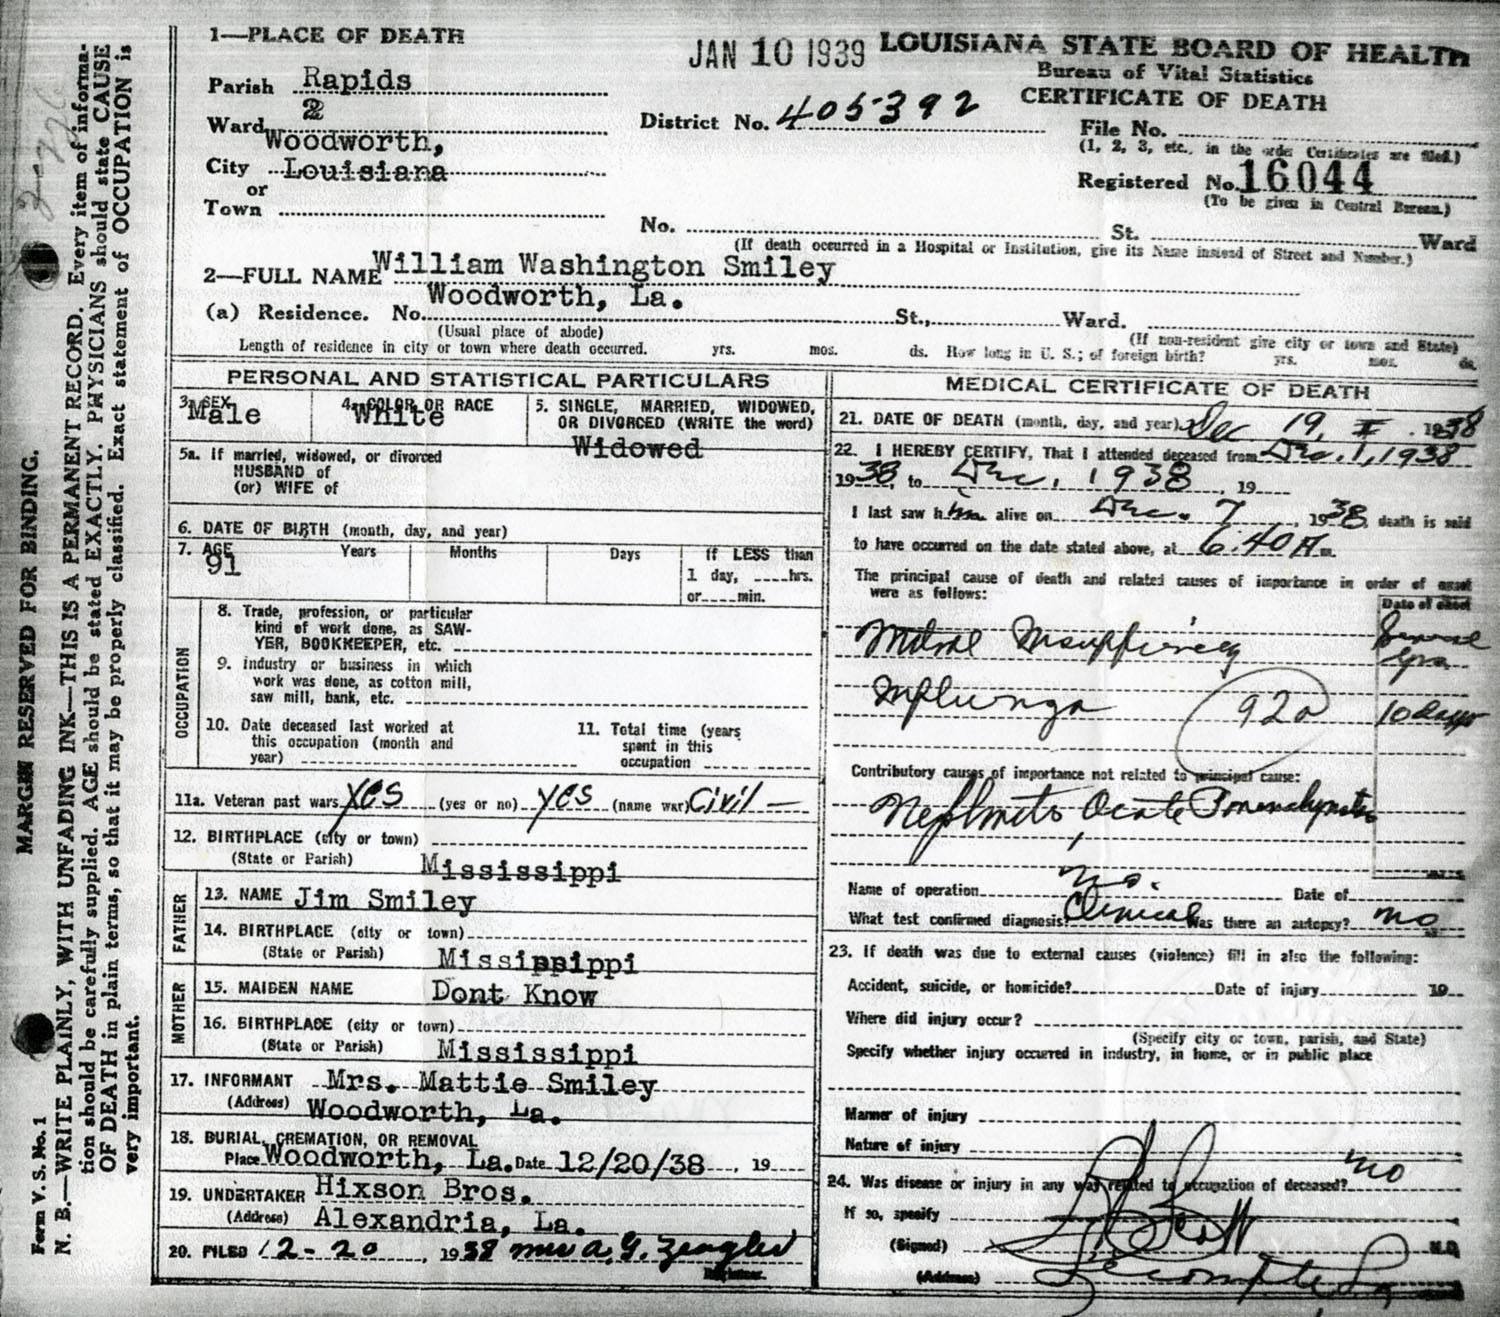 1—PLACE OF DEATH
JAN 10 1939
LOUISIANA STATE BOARD OF HEALTH
Bureau of Vital Statistics
CERTIFICATE OF DEATH
Parish Rapids
Ward 2
Woodworth,
City Louisiana
or
Town
District No. 405-392
File No.
(1, 2, 3, etc., in the order Certificates are filed.)
Registered No. 16044
(To be given in Central Bureau.)
No. St. Ward
(If death occurred in a Hospital or Institution, give its Name instead of Street and Number.)
2—FULL NAME William Washington Smiley
Woodworth, La.
(a) Residence. No. St., Ward.
(Usual place of abode)
(If non-resident give city or town and State)
Length of residence in city or town where death occurred. yrs. mos. ds. How long in U. S.; of foreign birth? yrs. mos. ds.
PERSONAL AND STATISTICAL PARTICULARS
3. SEX Male
4. COLOR OR RACE White
5. SINGLE, MARRIED, WIDOWED, OR DIVORCED (WRITE the word)
Widowed
5a. If married, widowed, or divorced
HUSBAND of
(or) WIFE of
6. DATE OF BIRTH (month, day, and year)
7. AGE Years Months Days If LESS than
91
1 day, ____hrs.
or____min.
OCCUPATION
8. Trade, profession, or particular
kind of work done, as SAW-
YER, BOOKKEEPER, etc.
9. industry or business in which
work was done, as cotton mill,
saw mill, bank, etc.
10. Date deceased last worked at
this occupation (month and
year)
11. Total time (years
spent in this
occupation
11a. Veteran past wars yes (yes or no) yes (name war) Civil —
12. BIRTHPLACE (city or town)
(State or Parish) Mississippi
FATHER
13. NAME Jim Smiley
14. BIRTHPLACE (city or town)
(State or Parish) Missippippi
MOTHER
15. MAIDEN NAME Dont Know
16. BIRTHPLACE (city or town)
(State or Parish) Mississippi
17. INFORMANT Mrs. Mattie Smiley
(Address) Woodworth, La.
18. BURIAL, CREMATION, OR REMOVAL
Place Woodworth, La. Date 12/20/38, 19
19. UNDERTAKER Hixson Bros.
(Address) Alexandria, La.
20. FILED 12-20, 1938 Mrs A. G. Zeagler
Registrar.
MEDICAL CERTIFICATE OF DEATH
21. DATE OF DEATH (month, day, and year) Dec 19, 1938
22. I HEREBY CERTIFY, That I attended deceased from Dec. 1, 1938
1938, to Dec. 1938, 19
I last saw him alive on Dec. 7, 1938, death is said
to have occurred on the date stated above, at 6:40 A m.
The principal cause of death and related causes of importance in order of onset
were as follows:
Date of onset
Mitral Insufficiency Several
yrs.
92a 10 days
Contributory causes of importance not related to principal cause:
Nephritis, Acute
Name of operation no. Date of
What test confirmed diagnosis? Clinical Was there an autopsy? no
23. If death was due to external causes (violence) fill in also the following:
Accident, suicide, or homicide? Date of injury 19
Where did injury occur?
(Specify city or town, parish, and State)
Specify whether injury occurred in industry, in home, or in public place
Manner of injury
Nature of injury
24. Was disease or injury in any way related to occupation of deceased? no
If so, specify
(Signed) M.D.
(Address) Lecompte La
MARGEN RESERVED FOR BINDING.
N. B.—WRITE PLAINLY, WITH UNFADING INK—THIS IS A PERMANENT RECORD. Every item of informa-
tion should be carefully supplied. AGE should be stated EXACTLY. PHYSICIANS should state CAUSE
OF DEATH in plain terms, so that it may be properly classified. Exact statement of OCCUPATION is
very important.
Form V. S. No. 1